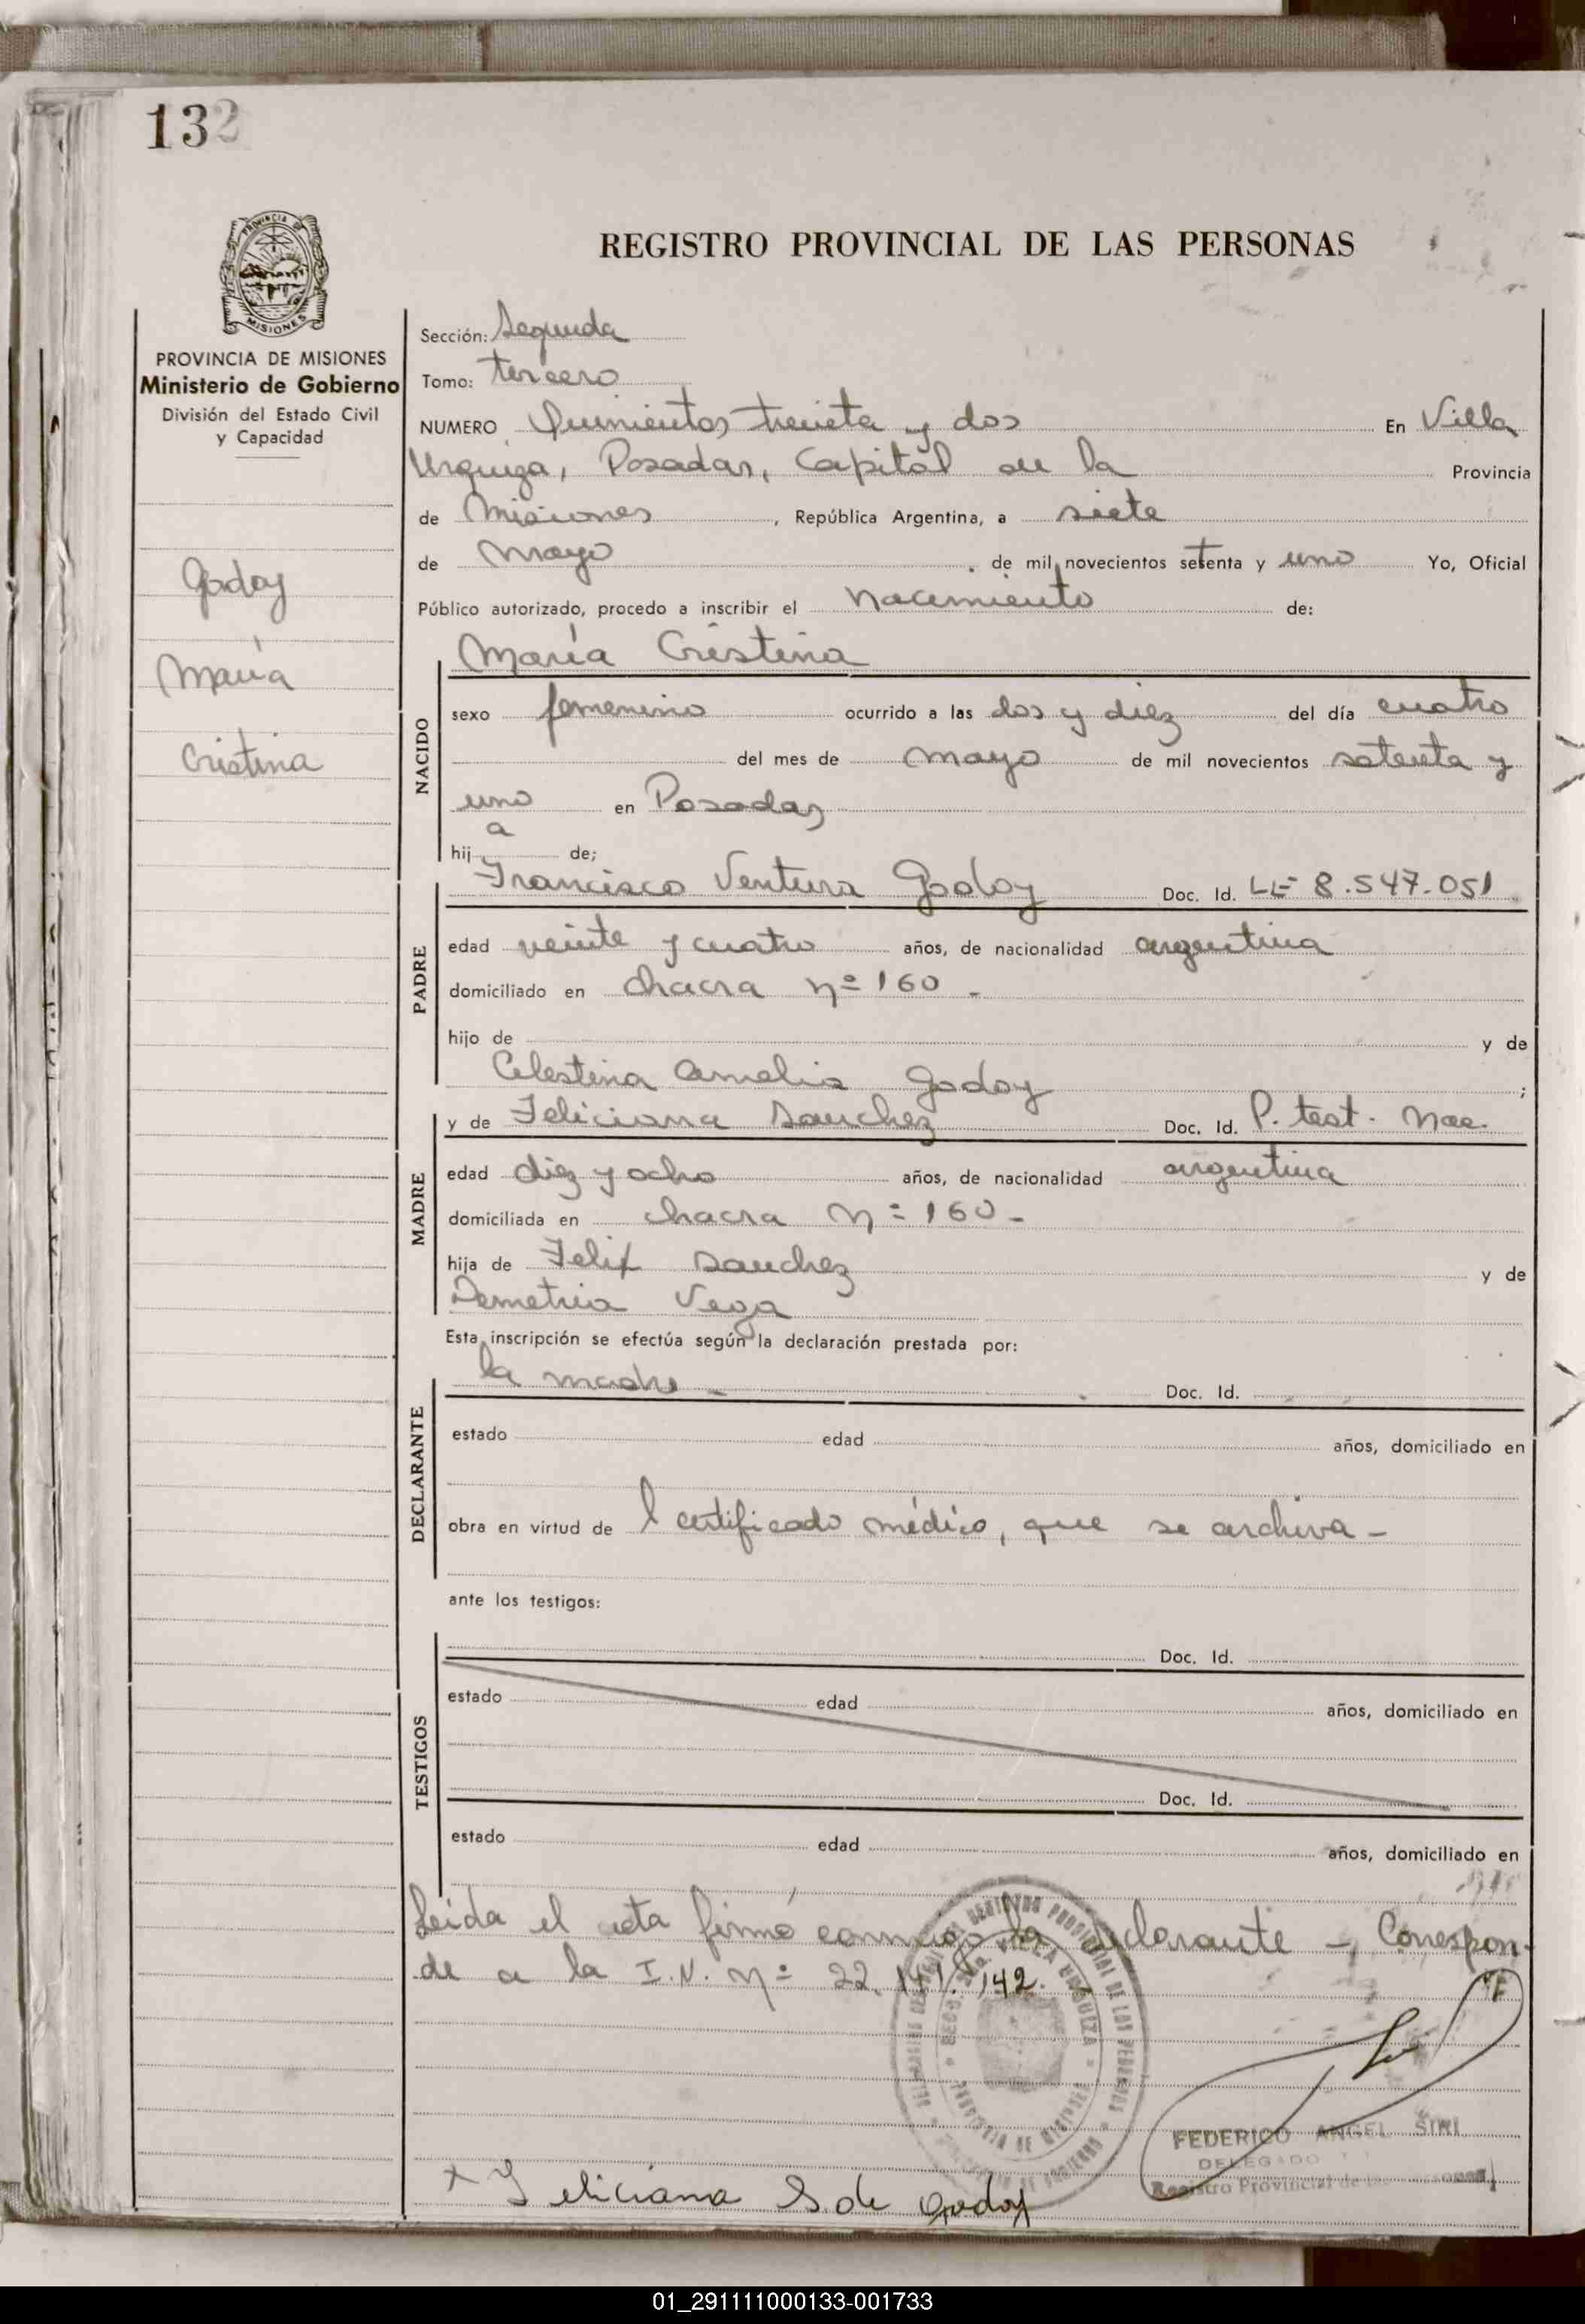 132
PROVINCIA DE
MISIONES
PROVINCIA DE MISIONES
Ministerio de Gobierno
División del Estado Civil
y Capacidad
Godoy
María
Cristina
REGISTRO PROVINCIAL DE LAS PERSONAS
Sección: Segunda
Tomo: tercero
NUMERO Quinientos treinta y dos En Villa
Urquiza, Posadas, Capital de la Provincia
de Misiones, República Argentina, a siete
de mayo de mil novecientos setenta y uno Yo, Oficial
Público autorizado, procedo a inscribir el nacimiento de:
María Cristina
NACIDO
sexo femenino ocurrido a las dos y diez del día cuatro
del mes de mayo de mil novecientos setenta y
uno en Posadas
hija de;
PADRE
Francisco Ventura Godoy Doc. Id. LE 8.547.051
edad veinte y cuatro años, de nacionalidad argentina
domiciliado en chacra nº 160 -
hijo de y de
Celestina Amelia Godoy ;
MADRE
y de Feliciana Sanchez Doc. Id. P. test. Nac.
edad diez y ocho años, de nacionalidad argentina
domiciliada en chacra nº 160 -
hija de Felix Sanchez y de
Demetria Vega
Esta inscripción se efectúa según la declaración prestada por:
DECLARANTE
la madre - Doc. Id.
estado edad años, domiciliado en
obra en virtud de l certificado médico, que se archiva -
ante los testigos:
TESTIGOS
Doc. Id.
estado edad años, domiciliado en
Doc. Id.
estado edad años, domiciliado en
Leída el acta firmó conmigo la declarante -, Correspon-
de a la I.N. nº 22.141.142.
FEDERICO ANGEL SIRI
DELEGADO
Registro Provincial de las Personas
x Feliciana S. de Godoy
01_291111000133-001733